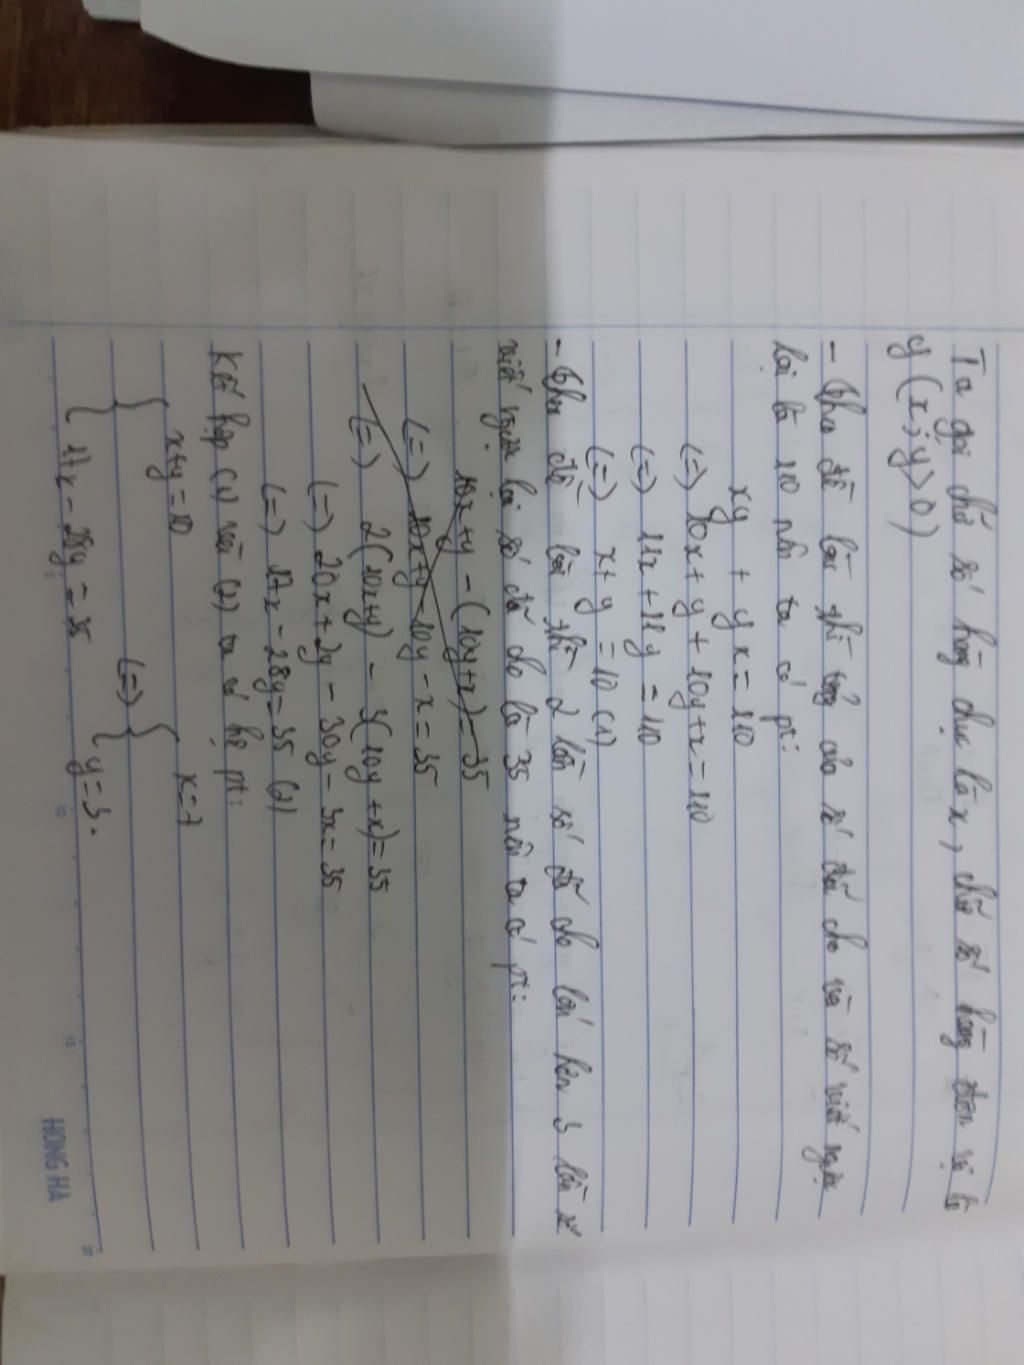 Ta gọi chữ số hàng chục là x, chữ số hàng đơn vị là
y (x; y > 0)
- Theo đề bài thì tổng của số đã cho và số viết ngược
lại là 110 nên ta có pt:
xy + yx = 110
(=) 10x + y + 10y + x = 110
(=) 11x + 11y = 110
(=) x + y = 10 (1)
- Theo đề bài thì 2 lần số đã cho lớn hơn 3 lần số
viết ngược lại số đã cho là 35 nên ta có pt:
10x + y - (10y + x) = 35
(=) 10x + y - 10y - x = 35
(=) 2(10x + y) - 3(10y + x) = 35
(=) 20x + 2y - 30y - 3x = 35
(=) 17x - 28y = 35 (2)
Kết hợp (1) và (2) ta có hệ pt:
x + y = 10 x = 7
(=)
17x - 28y = 35 y = 3.
10 15 20
HONG HA